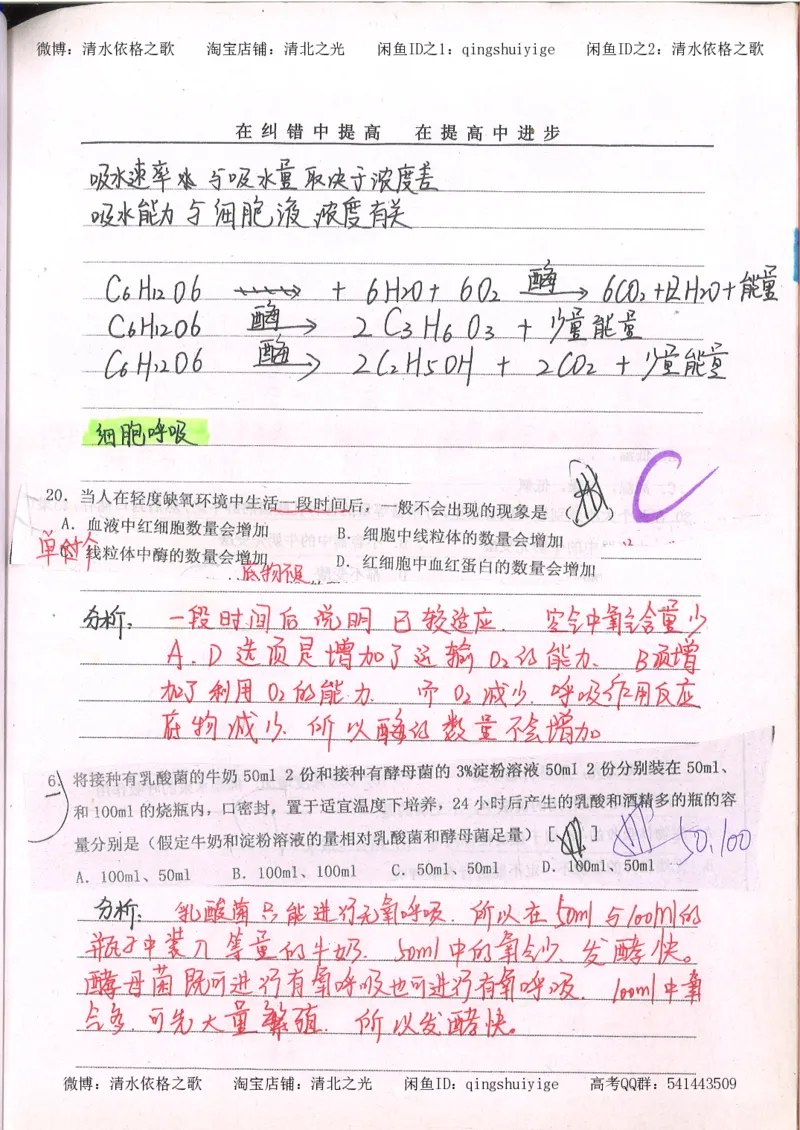 微博：清水依格之歌 淘宝店铺：清北之光 闲鱼ID之1：qingshuiyige 闲鱼ID之2：清水依格之歌
在纠错中提高 在提高中进步
吸水速率 与吸水量取决于浓度差
吸水能力与细胞液浓度有关
C6H12O6 + 6H2O + 6O2 酶→ 6CO2+12H2O+能量
C6H12O6 酶→ 2C3H6O3 + 少量能量
C6H12O6 酶→ 2C2H5OH + 2CO2 + 少量能量
细胞呼吸
20．当人在轻度缺氧环境中生活一段时间后，一般不会出现的现象是（ ） C
A．血液中红细胞数量会增加 B．细胞中线粒体的数量会增加
单位个
C．线粒体中酶的数量会增加 D．红细胞中血红蛋白的数量会增加
底物限
分析：一段时间后说明已较适应．空气中氧气含量少
A．D选项是增加了运输O2的能力．B项增
加了利用O2的能力．而O2减少．呼吸作用反应
底物减少．所以酶的数量不会增加
6．将接种有乳酸菌的牛奶50ml 2份和接种有酵母菌的3%淀粉溶液50ml 2份分别装在50ml、
和100ml的烧瓶内，口密封，置于适宜温度下培养，24小时后产生的乳酸和酒精多的瓶的容
量分别是（假定牛奶和淀粉溶液的量相对乳酸菌和酵母菌足量）[ ] 50,100
A．100ml、50ml B．100ml、100ml C．50ml、50ml D．100ml、50ml
分析：乳酸菌只能进行无氧呼吸．所以在50ml与100ml的
瓶子中装入等量的牛奶．50ml中的氧气少．发酵快。
酵母菌既可进行有氧呼吸也可进行有氧呼吸．100ml中氧
气多．可先大量繁殖．所以发酵快。
微博：清水依格之歌 淘宝店铺：清北之光 闲鱼ID：qingshuiyige 高考QQ群：541443509